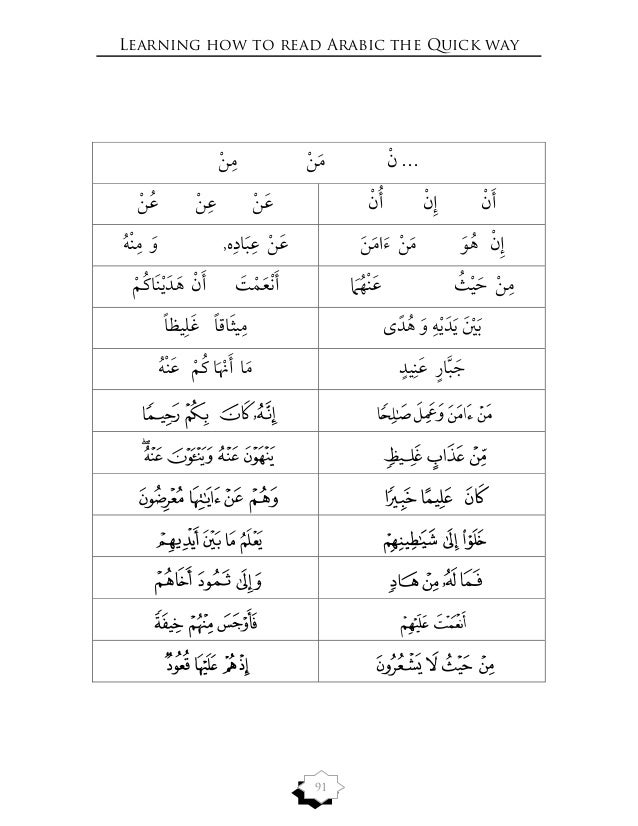 Learning how to read Arabic the Quick way
... نْ مَنْ مِنْ
أَنْ إِنْ أُنْ عَنْ عِنْ عُنْ
إِنْ هُوَ مَنْ ءَامَنَ عَنْ عِبَادِهِۦ وَ مِنْهُ
مِنْ حَيْثُ عَنْهُمَا أَنْعَمْتَ أَنْ هَدَيْنَاكُمْ
بَيْنَ يَدَيْهِ وَ هُدًى مِيثَاقاً غَلِيظاً
جَبَّارٍ عَنِيدٍ مَا أَنْهَاكُمْ عَنْهُ
مَنْ ءَامَنَ وَعَمِلَ صَٰلِحًا إِنَّهُۥ كَانَ بِكُمْ رَحِيمًا
مِّنْ عَذَابٍ غَلِيظٍ يَنْهَوْنَ عَنْهُ وَيَنْـَٔوْنَ عَنْهُ ۖ
كَانَ عَلِيمًا خَبِيرًا وَهُمْ عَنْ ءَايَٰتِهَا مُعْرِضُونَ
خَلَوْا۟ إِلَىٰ شَيَٰطِينِهِمْ يَعْلَمُ مَا بَيْنَ أَيْدِيهِمْ
فَمَا لَهُۥ مِنْ هَادٍ وَإِلَىٰ ثَمُودَ أَخَاهُمْ
أَنْعَمْتَ عَلَيْهِمْ فَأَوْجَسَ مِنْهُمْ خِيفَةً
مِنْ حَيْثُ لَا يَشْعُرُونَ إِذْ هُمْ عَلَيْهَا قُعُودٌ
91